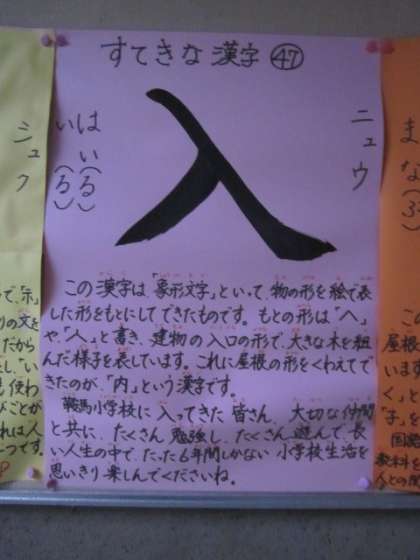 すてきな漢字㊼
入
ニュウ
はい(る)
い(る)
この漢字は、「象形文字」といって、物の形を絵で表
した形をもとにしてできたものです。もとの形は「へ」
や「人」と書き、建物の入口の形で、大きな木を組
んだ様子を表しています。これに屋根の形をくわえてで
きたのが、「内」という漢字です。
鞍馬小学校に入ってきた皆さん、大切な仲間
と共に、たくさん勉強し、たくさん遊んで、長
い人生の中で、たった6年間しかない小学校生活を
思いきり楽しんでくださいね。
シュク
で、「示」
だから
使わ
れは人
つです。
まな(
屋根
います
く」と
「子」を
国語
教科書
人との関